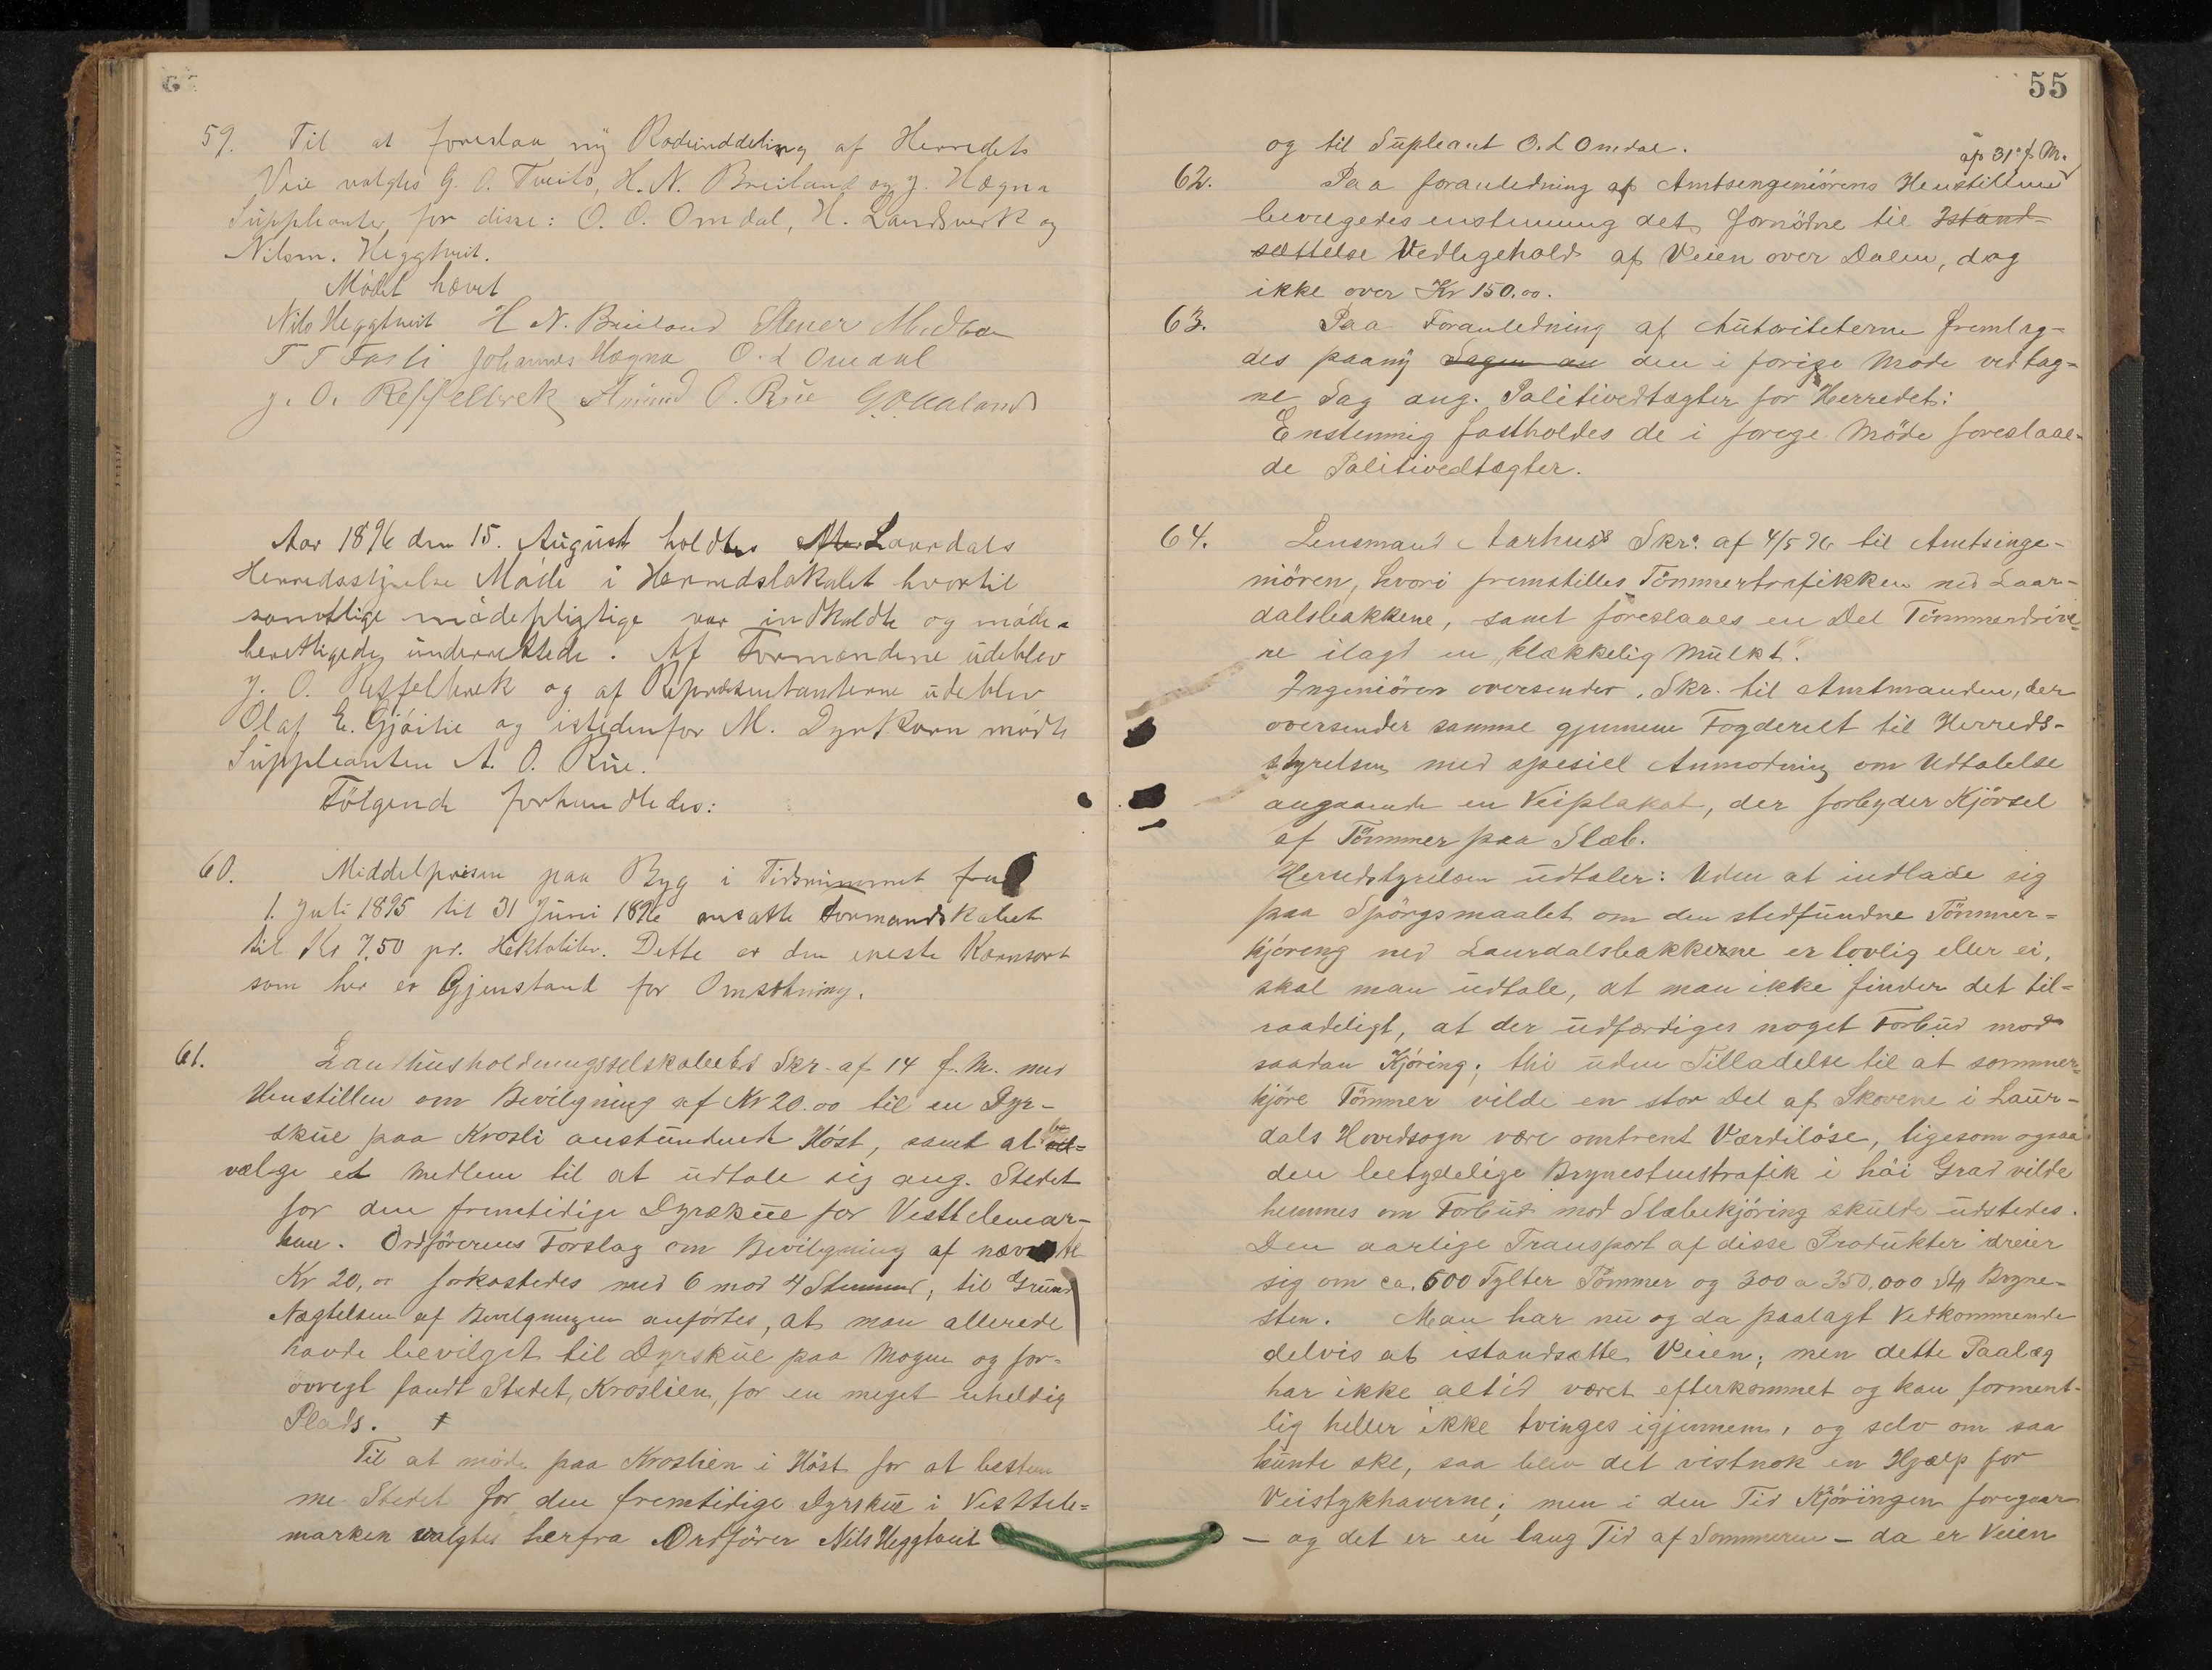 59. Til at foreslaa ny Rodeinddeling af Herredets
Veie valgtes G. O. Tveito, H. N. Breiland og J. Hægna
Suppleanter for disse: O. O. Omdal, H. Landsverk og
Nilsm. Heggtveit.
Mödet hævet
Nils Heggtveit H N. Breiland Stener Midbøe
T T Fosli Johannes Hægna O. L Omdal
J. O. Reffelbrek Amund O. Rue
Aar 1896 den 15. August holdtes Laurdals
Herredsstyrelse Möde i Herredslokalet hvortil
samtlige mödepligtige var indkaldte og möde-
berettigede underrettede. Af Formændene udeblev
J. O. Reffelbrek og af Repræsentanterne udeblev
Olaf E. Gjöitie og istedenfor M. Dyrkorn mödte
Suppleanten A. O. Rue.
Fölgende forhandledes:
60. Middelprisen paa Byg i Tidsrummet fra
1. Juli 1895 til 31 Juni 1896 ansatte Formandskabet
til Kr 7,50 pr. Hektoliter. Dette er den eneste Kornsort
som her er Gjenstand for Omsætning.
61. Landhusholdningsselskabets Skr. af 14 f. M. med
Henstillen om Bevilgning af Kr 20.00 til en Dyr-
skue paa Krosli anstundende Höst, samt at
vælge et Medlem til at udtale sig ang. Stedet
for den fremtidige Dyrskue for Vesttelemar-
ken. Ordförerens Forslag om Bevilgning af nævnte
Kr 20,00 forkastedes med 6 mod 4 Stemmer; til Grund
Nægtelsen af Bevilgningen anförtes, at man allerede
havde bevilget til Dyrskue paa Mogen og for-
övrigt fandt Stedet, Kroslien, for en meget uheldig
Plads. +
Til at möde paa Kroslien i Höst for at bestem
me Stedet for den fremtidige Dyrskue i Vesttele=
marken valgtes herfra Ordförer Nils Heggtveit
55
og til Supleant O. L Omdal.
af 31 f. M.
62. Paa foranledning af Amtsengeniörens Henstillen
bevilgedes enstemmig det fornödne til Istand-
sættelse Vedligehold af Veien over Dalen, dog
ikke over Kr 150.00.
63. Paa Foranledning af Autoriteterne fremlag-
des paany Sagen an den i forige Möde vedtag-
ne Sag ang. Politivedtægter for Herredet:
Enstemmig fastholdes de i forige Möde foreslaae-
de Politivedtægter.
64. Lensmand Aarhus's Skr. af 4/5 96 til Amtsinge-
niören, hvori fremstilles Tömmertrafikken ned Laar-
dalsbakkene, samt foreslaaes en Del Tömmerdrive-
re ilagt en "klækkelig Mulkt".
Ingeniören oversender Skr. til Amtmanden, der
oversender samme gjennem Fogderiet til Herreds-
styrelsen med spesiel Anmodning om Udtalelse
angaaende en Veiplakat, der forbyder Kjörsel
af Tömmer paa Slæb.
Herredstyrelsen udtaler: Uden at indlade sig
paa Spörgsmaalet om den stedfundne Tömmer=
kjöring ned Laurdalsbakkerne er lovlig eller ei,
skal man udtale, at man ikke finder det til=
raadeligt, at der udfærdiges noget Forbud mod
saadan Kjöring; thi uden Tilladelse til at sommer=
kjöre Tömmer vilde en stor Del af Skovene i Laur-
dals Hovedsogn være omtrent Værdilöse, ligesom ogsaa
den betydelige Brynestenstrafik i höi Grad vilde
hemmes om Forbud mod Slæbekjöring skulde udstedes.
Den aarlige Transport af disse Produkter dreier
sig om ca. 600 Tylter Tömmer og 300 a 350.000 Stk Bryne-
sten. Man har nu og da paalagt Vedkommende
delvis at istandsætte Veien; men dette Paalæg
har ikke altid været efterkommet og kan forment-
lig heller ikke tvinges igjennem, og selv om saa
kunde ske, saa blev det vistnok en Hjælp for
Veistykhaverne; men i den Tid Kjöringen foregaar
— og det er en lang Tid af Sommeren — da er Veien